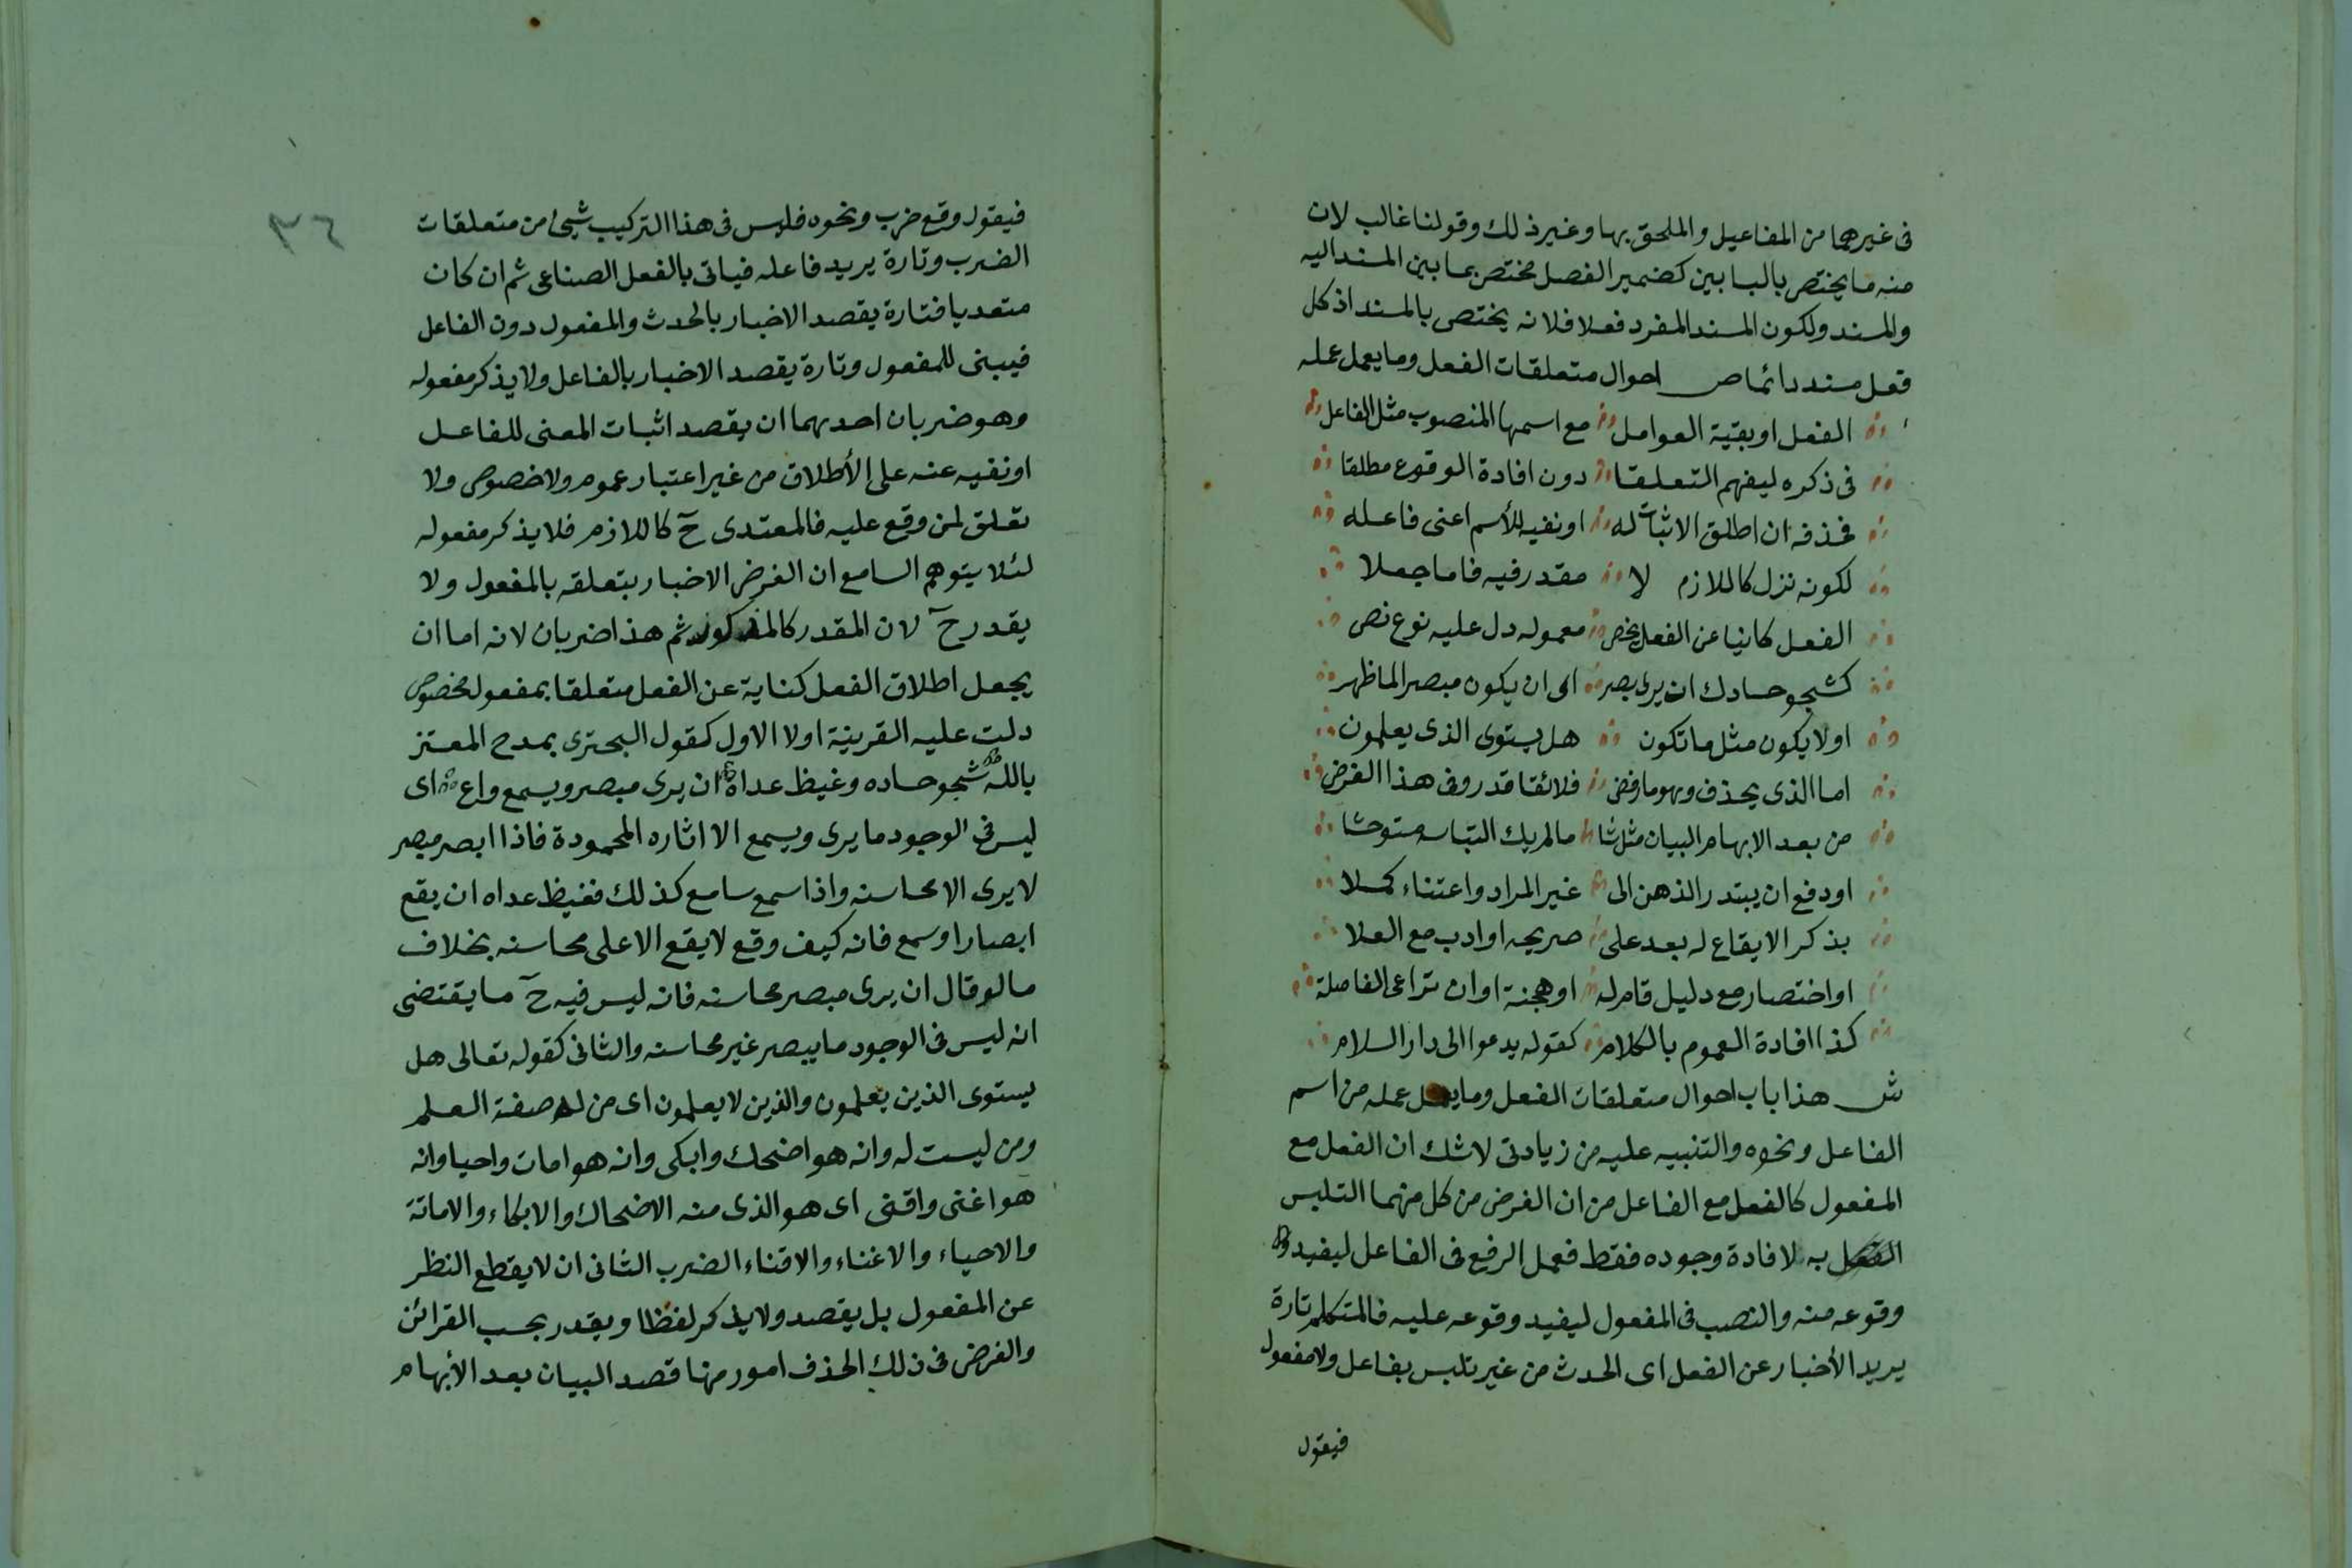 فى غيرهما من المفاعيل والملحق بها وغير ذلك وقولنا غالب لان
منه ما يختص بالبابين كضمير الفصل مختص بما بين المسند اليه
والمسند ولكون المسند المفرد فعلا فلانه يختص بالمسند اذ كل
فعل مسند دائما ص احوال متعلقات الفعل وما يعمل عمله
الفعل او بقية العوامل مع اسمها المنصوب مثل الفاعل
فى ذكره ليفهم التعلقا دون افادة الوقوع مطلقا
فحذفه ان اطلق الاثبات له او نفيه للأسم اعنى فاعله
لكونه نزل كاللازم لا مقدر فيه فاما جعلا
الفعل كانيا عن الفعل يخص معموله دل عليه نوع نص
كشجو حسادك ان يرى بصر اى ان يكون مبصر الما ظهر
اولا يكون مثل ما تكون هل يستوى الذى يعلمون
اما الذى يحذف وهو ما رفض فلائقا قدر وفى هذا الغرض
من بعد الابهام البيان مثل شا ما لم يك التباسه مستوحشا
او دفع ان يبتدر الذهن الى غير المراد واعتناء كملا
بذكر الايقاع له بعد على صريحه او ادب مع العلا
او اختصار مع دليل قام له او هجنة او ان تراعى الفاصلة
كذا افادة العموم بالكلام كقوله يدعوا الى دار السلام
ش هذا باب احوال متعلقات الفعل وما يعمل عمله من اسم
الفاعل ونحوه والتنبيه عليه من زيادتى لا شك ان الفعل مع
المفعول كالفعل مع الفاعل من ان الغرض من كل منهما التلبس
به لا فادة وجوده فقط فعمل الرفع فى الفاعل ليفيد
وقوعه منه والنصب فى المفعول ليفيد وقوعه عليه فالمتكلم تارة
يريد الأخبار عن الفعل اى الحدث من غير تلبس بفاعل ولا مفعول
فيقول
٣٤
فيقول وقع ضرب ونحوه فليس فى هذا التركيب شيئ من متعلقات
الضرب وتارة يريد فاعله فياتى بالفعل الصناعى ثم ان كان
متعديا فتارة يقصد الاخبار بالحدث والمفعول دون الفاعل
فيبنى للمفعول وتارة يقصد الاخبار بالفاعل ولا يذكر مفعوله
وهو ضربان احدهما ان يقصد اثبات المعنى للفاعل
او نفيه عنه على الأطلاق من غير اعتبار عموم ولا خصوص ولا
تعلق لمن وقع عليه فالمعتدى ح كاللازم فلا يذكر مفعوله
لئلا يتوهم السامع ان الغرض الاخبار بتعلقه بالمفعول ولا
يقدر ح لان المقدر كالمذكور ثم هذا ضربان لانه اما ان
يجعل اطلاق الفعل كناية عن الفعل متعلقا بمفعول مخصوص
دلت عليه القرينة اولا الاول كقول البحترى يمدح المعتز
بالله شجو حساده وغيظ عداه ان يرى مبصر ويسمع واع اى
ليس فى الوجود ما يرى ويسمع الا اثاره المحمودة فاذا ابصر مبصر
لا يرى الا محاسنه واذا سمع سامع كذلك فغيظ عداه ان يقع
ابصار او سمع فانه كيف وقع لا يقع الا على محاسنه بخلاف
ما لو قال ان يرى مبصر محاسنه فانه ليس فيه ح ما يقتضى
انه ليس فى الوجود ما يبصر غير محاسنه والثانى كقوله تعالى هل
يستوى الذين يعلمون والذين لا يعلمون اى من له صفة العلم
ومن ليست له وانه هو اضحك وابكى وانه هو امات واحيا وانه
هو اغنى واقنى اى هو الذى منه الاضحاك والابكاء والاماتة
والاحياء والاغناء والاقناء الضرب الثانى ان لا يقطع النظر
عن المفعول بل يقصد ولا يذكر لفظا ويقدر بحسب القرائن
والغرض فى ذلك الحذف امور منها قصد البيان بعد الأبهام